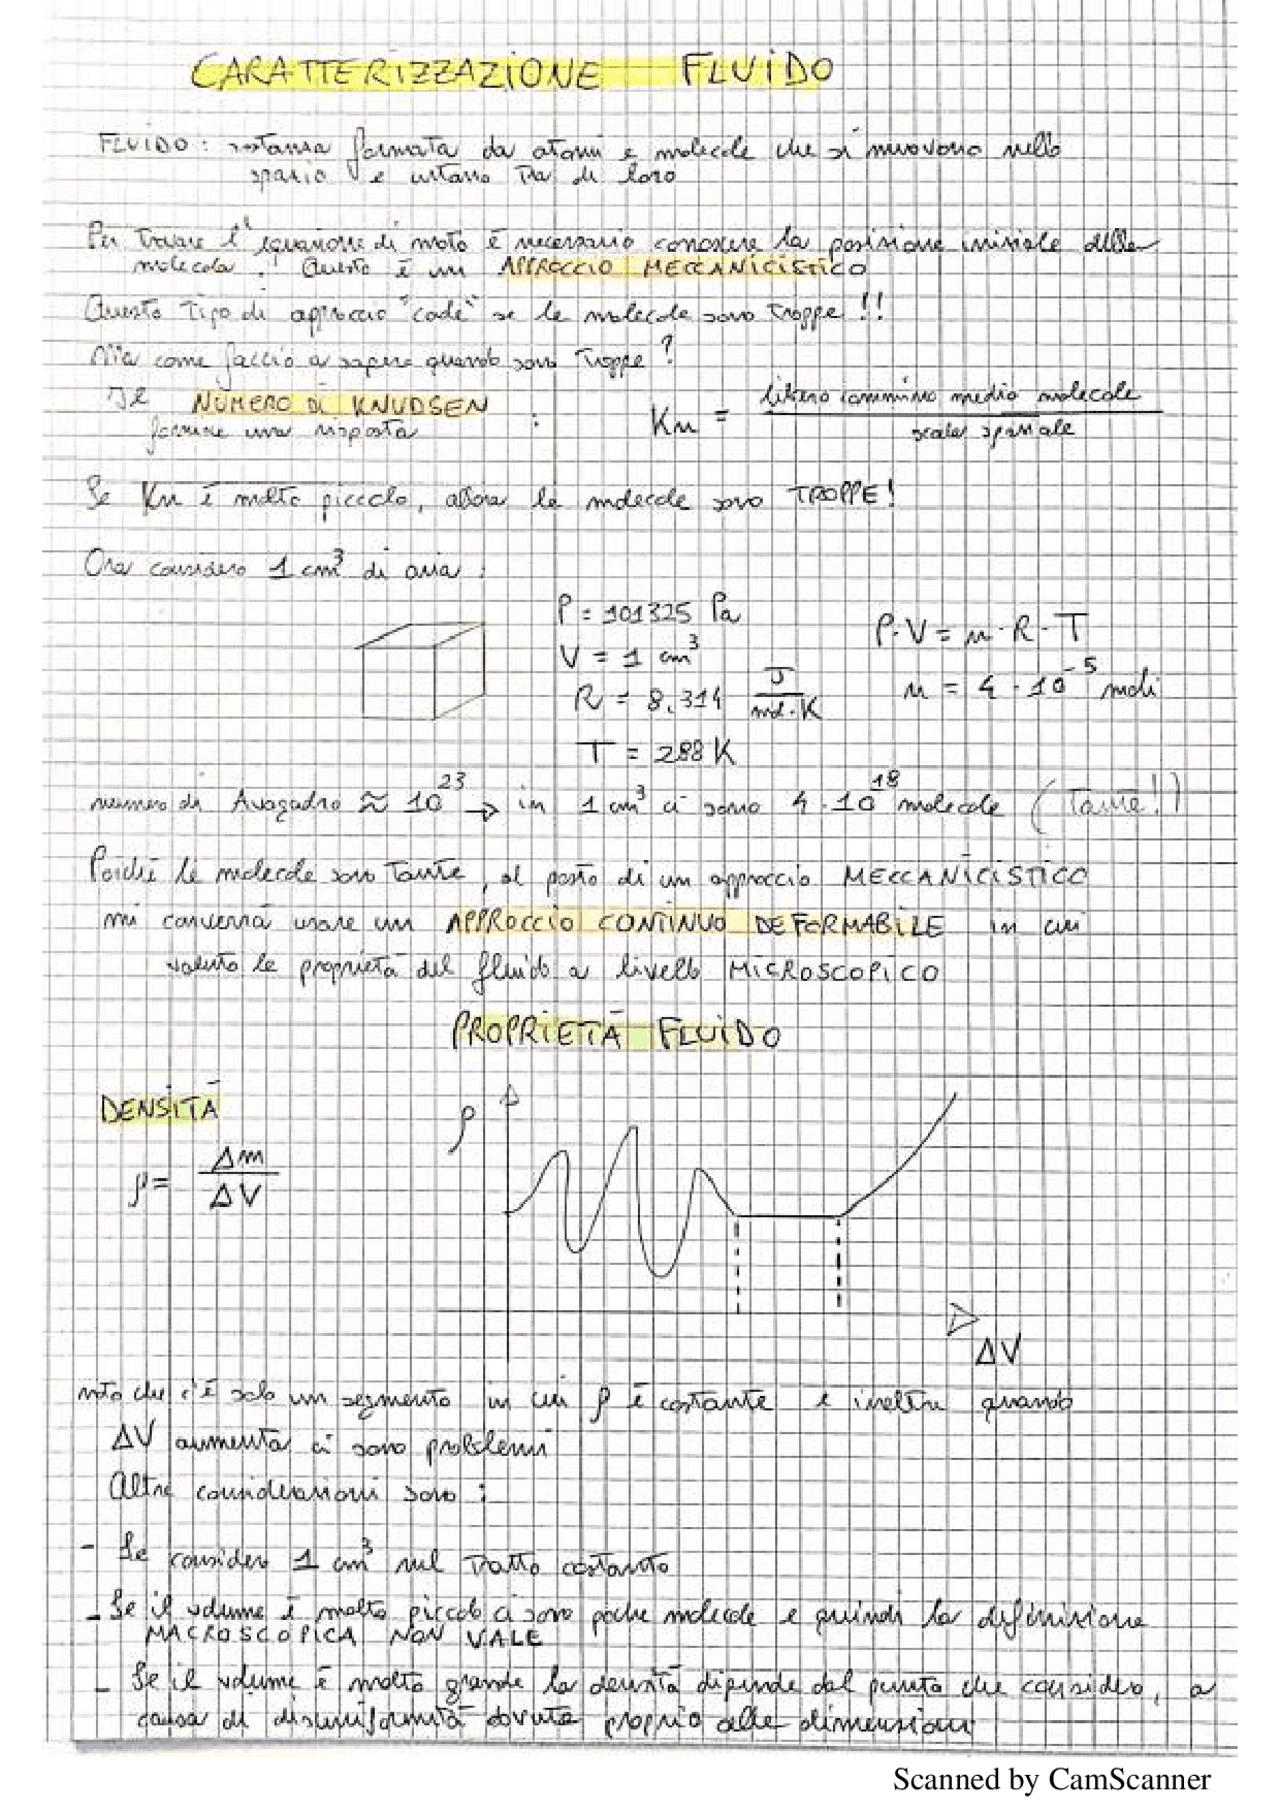 CARATTERIZZAZIONE FLUIDO
FLUIDO : sostanza formata da atomi e molecole che si muovono nello
spazio e urtano tra di loro
Per trovare l'equazione di moto è necessario conoscere la posizione iniziale della
molecola. Questo è un APPROCCIO MECCANICISTICO
Questo tipo di approccio "cade" se le molecole sono troppe !!
Ma come faccio a sapere quando sono troppe ?
Il NUMERO DI KNUDSEN :
fornisce una risposta
Kn = libero cammino medio molecole / scala spaziale
Se Kn è molto piccolo, allora le molecole sono TROPPE!
Ora considero 1 cm³ di aria :
P = 101325 Pa
V = 1 cm³
R = 8.314 J / mol·K
T = 288 K
P·V = n·R·T
n = 4·10⁻⁵ moli
numero di Avogadro ≈ 10²³ → in 1 cm³ ci sono 4·10¹⁸ molecole (tante!)
Poiché le molecole sono tante, al posto di un approccio MECCANICISTICO
mi converrà usare un APPROCCIO CONTINUO DEFORMABILE in cui
valuto le proprietà del fluido a livello MICROSCOPICO
PROPRIETÀ FLUIDO
DENSITÀ
ρ = Δm / ΔV
ρ
ΔV
noto che c'è solo un segmento in cui ρ è costante e inoltre quando
ΔV aumenta ci sono problemi
Altre considerazioni sono :
- Se considero 1 cm³ nel tratto costante
- Se il volume è molto piccolo ci sono poche molecole e quindi la definizione
MACROSCOPICA NON VALE
- Se il volume è molto grande la densità dipende dal punto che considero, a
causa di disuniformità dovute proprio alle dimensioni
Scanned by CamScanner